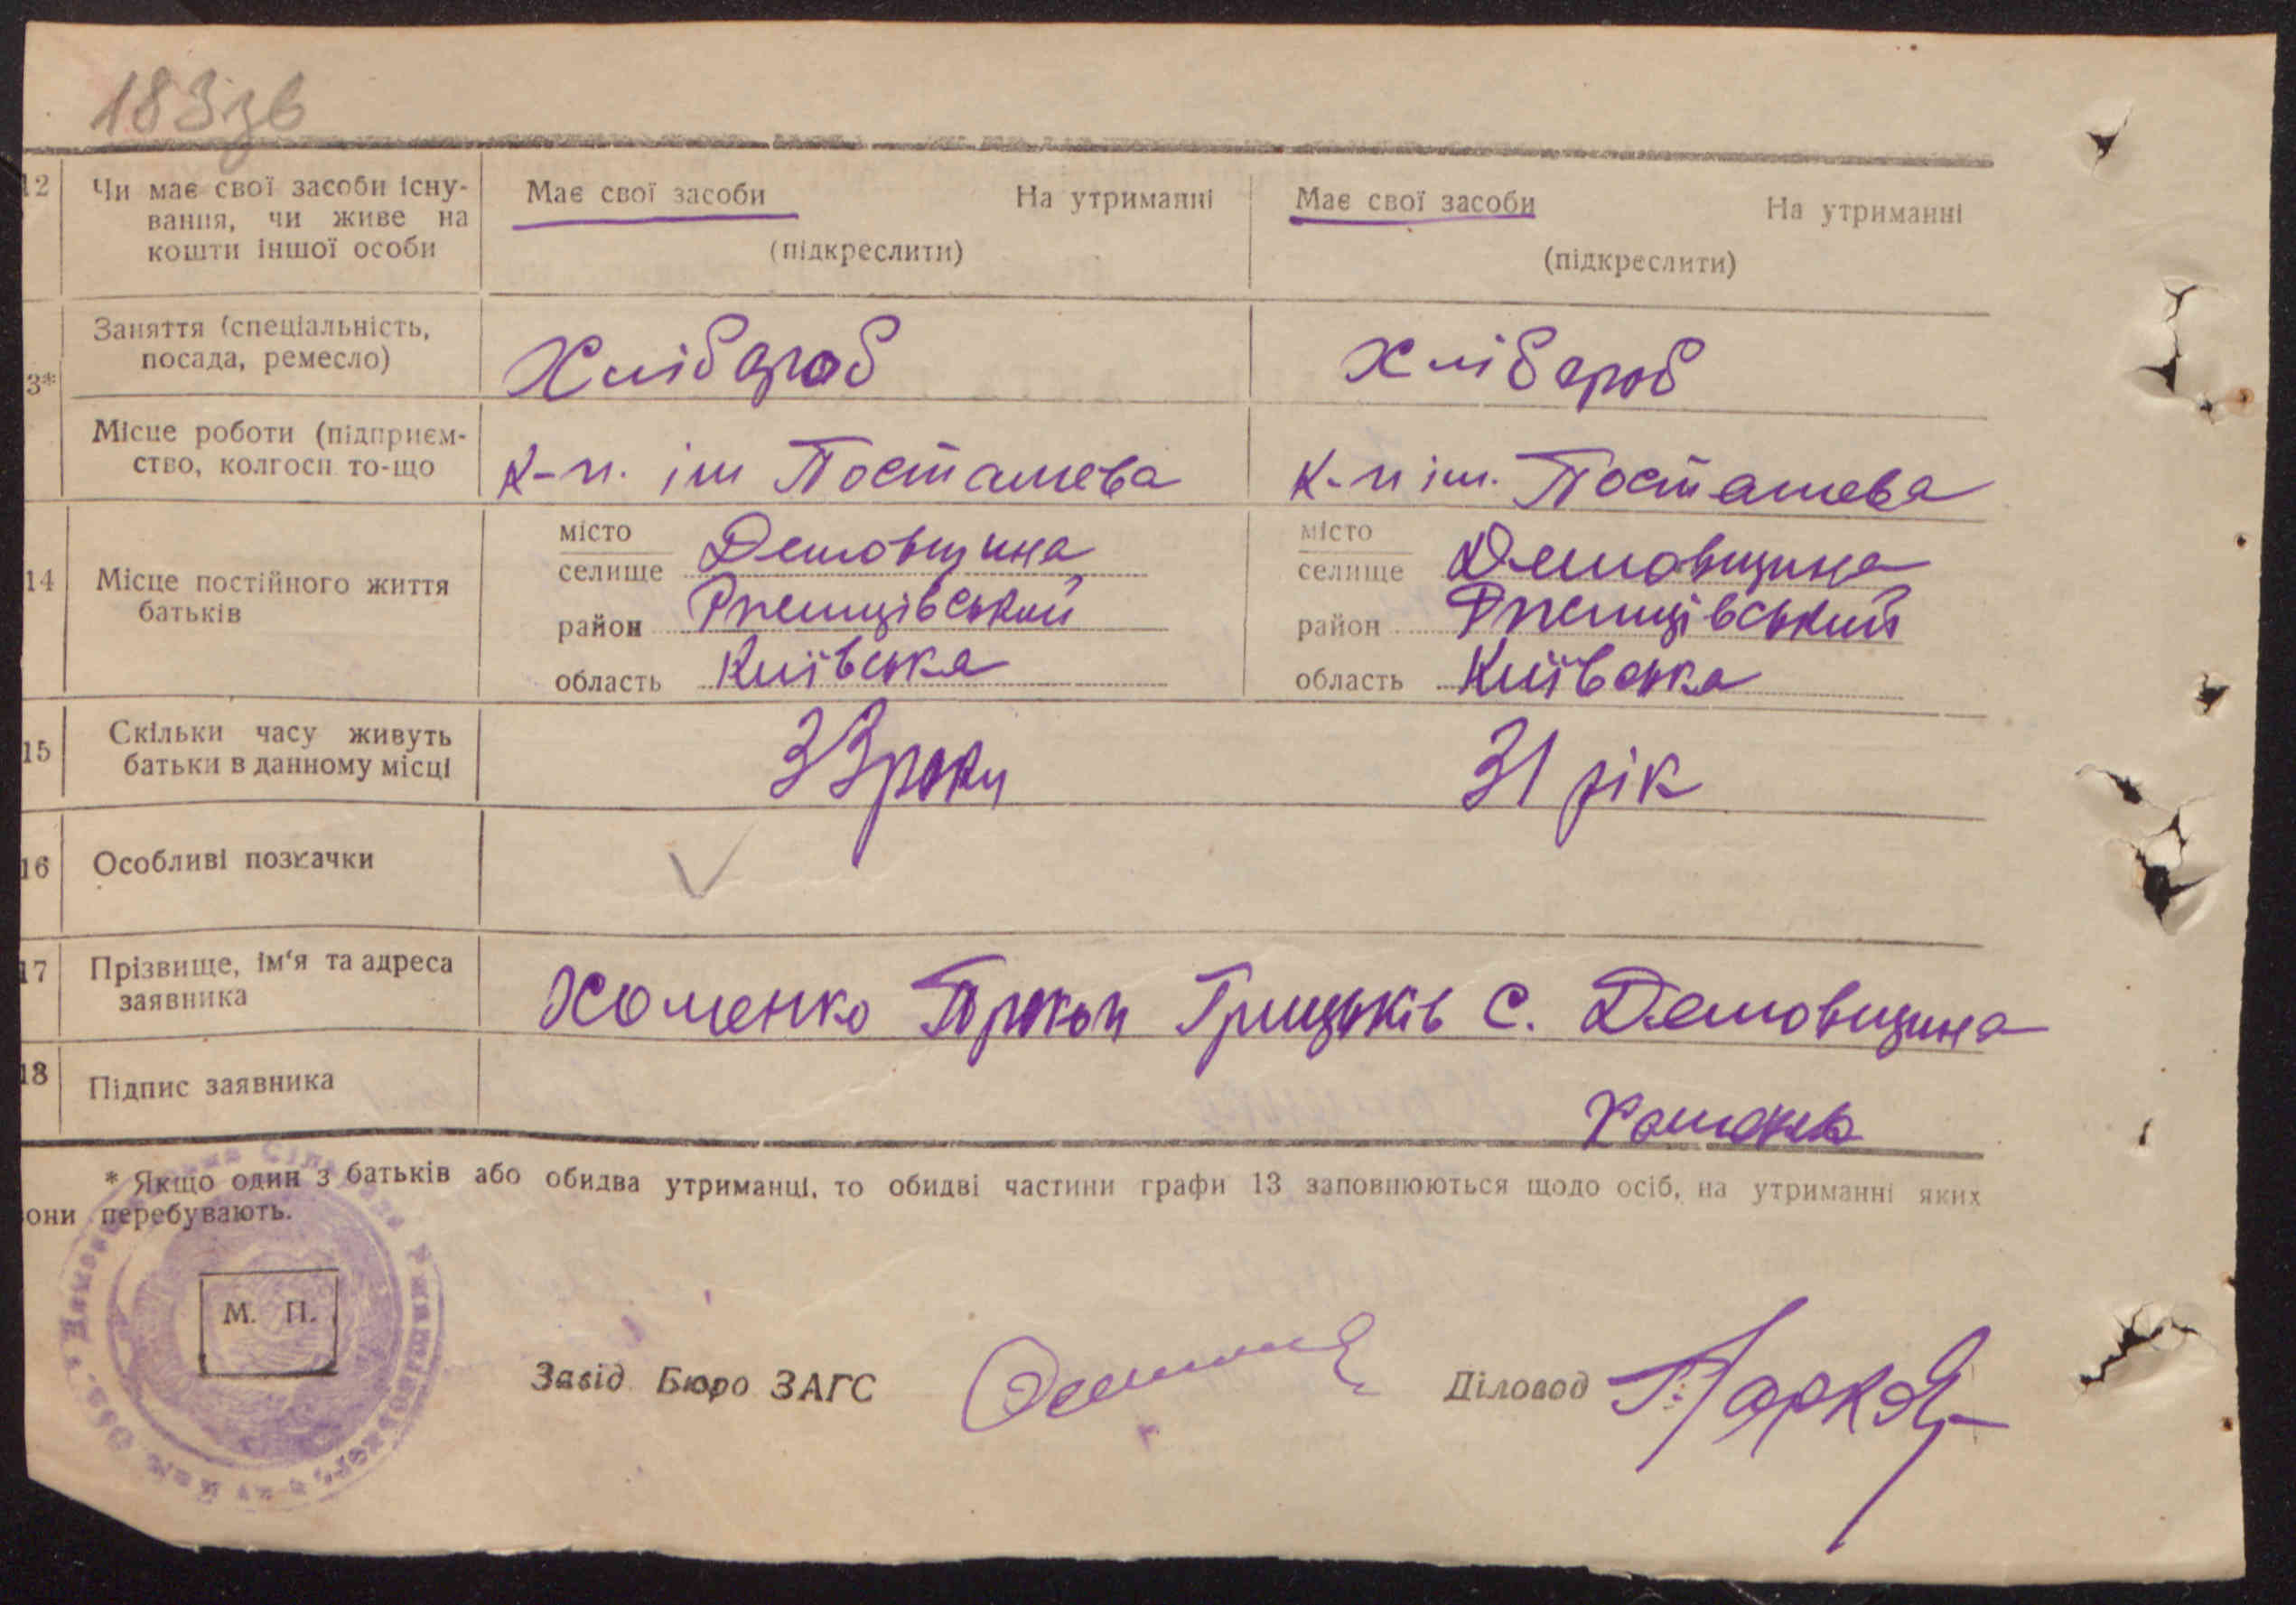 183зв
12 Чи має свої засоби існу- Має свої засоби На утриманні Має свої засоби На утриманні
вання, чи живе на
кошти іншої особи (підкреслити) (підкреслити)
Заняття (спеціальність,
посада, ремесло) Хлібороб Хлібороб
3*
Місце роботи (підприєм-
ство, колгосп то-що к-п. ім Посташева к-п ім. Посташева
місто Демовщина місто Демовщина
селище селище
14 Місце постійного життя
батьків район Ржищівський район Ржищівський
область Київська область Київська
15 Скільки часу живуть
батьки в данному місці 33 роки 31 рік
16 Особливі позначки
17 Прізвище, ім'я та адреса
заявника Хоменко Прокоп Грицьків с. Демовщина
18 Підпис заявника
Хоменко
* Якщо один з батьків або обидва утриманці, то обидві частини графи 13 заповнюються щодо осіб, на утриманні яких
они перебувають.
М. П.
Завід Бюро ЗАГС Діловод